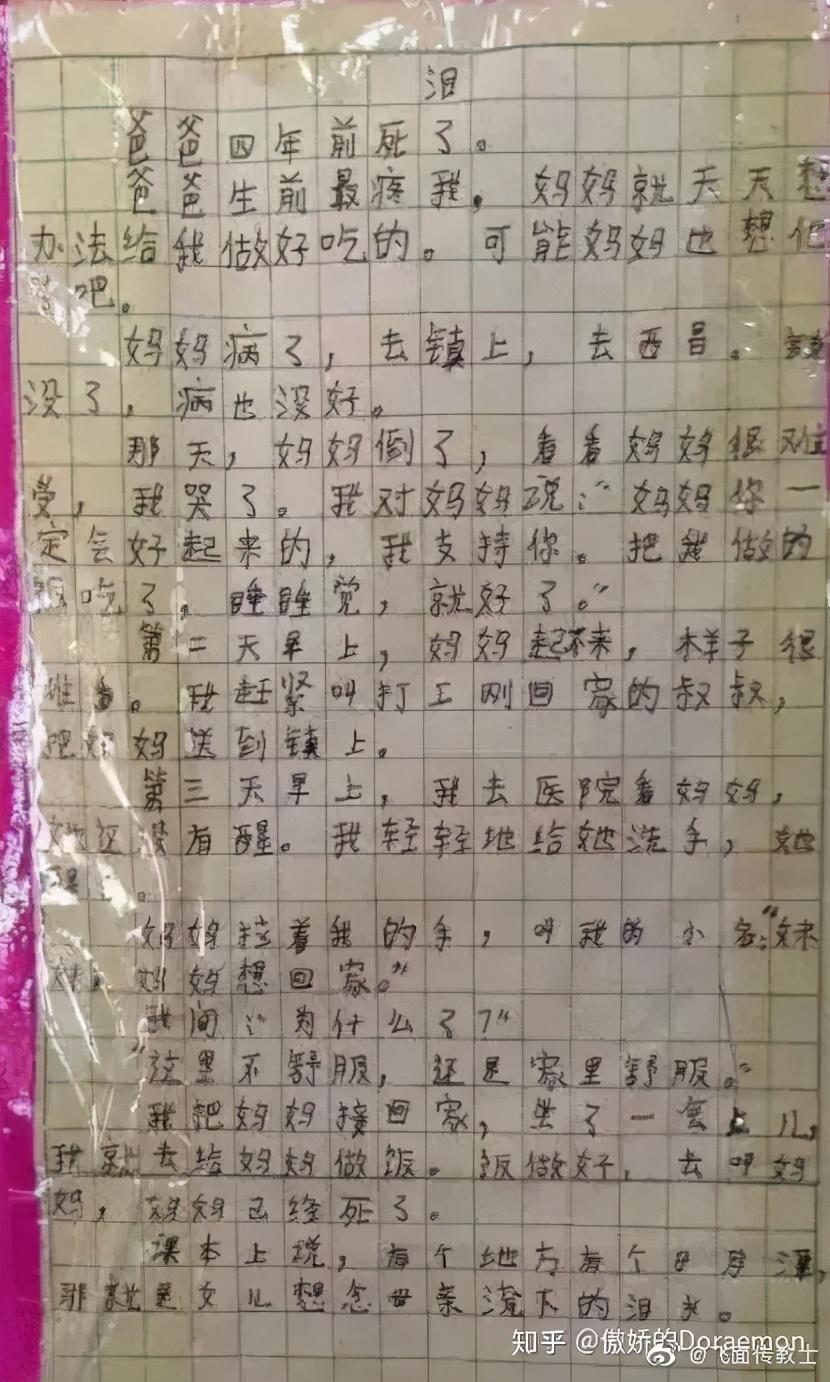 泪
爸爸四年前死了。
爸爸生前最疼我，妈妈就天天想
办法给我做好吃的。可能妈妈也想他
吧。
妈妈病了，去镇上，去西昌。
没了，病也没好。
那天，妈妈倒了，看看妈妈很难
受，我哭了。我对妈妈说：“妈妈你一
定会好起来的，我支持你。把我做的
饭吃了，睡睡觉，就好了。”
第二天早上，妈妈起不来，样子很
难看。我赶紧叫打工刚回家的叔叔，
把妈妈送到镇上。
第三天早上，我去医院看妈妈，
她还没有醒。我轻轻地给她洗手，她
妈妈拉着我的手，叫我的小名：“妹
妹，妈妈想回家。”
我问：“为什么了？”
“这里不舒服，还是家里舒服。”
我把妈妈接回家，坐了一会上儿，
我就去给妈妈做饭。饭做好，去叫妈
妈，妈妈已经死了。
课本上说，有个地方有个日月潭，
那就是女儿想念母亲流下的泪水。
知乎 @傲娇的Doraemon
@飞面传教士